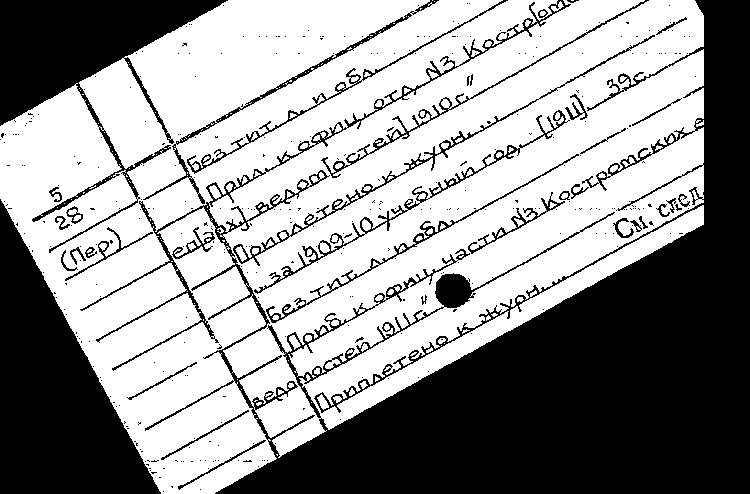 5
28
(Пер.)
Без тит. л. и обл.
Прил. к офиц. отд. №3 Костр[омских
еп[арх] ведом[остей] 1910 г."
Приплетено к журн. ...
... за 1909-10 учебный год. [1911]. 39 с.
Без тит. л. и обл.
Приб. к офиц. части №3 Костромских е
ведомостей 1911 г."
Приплетено к журн. ...
См. след.